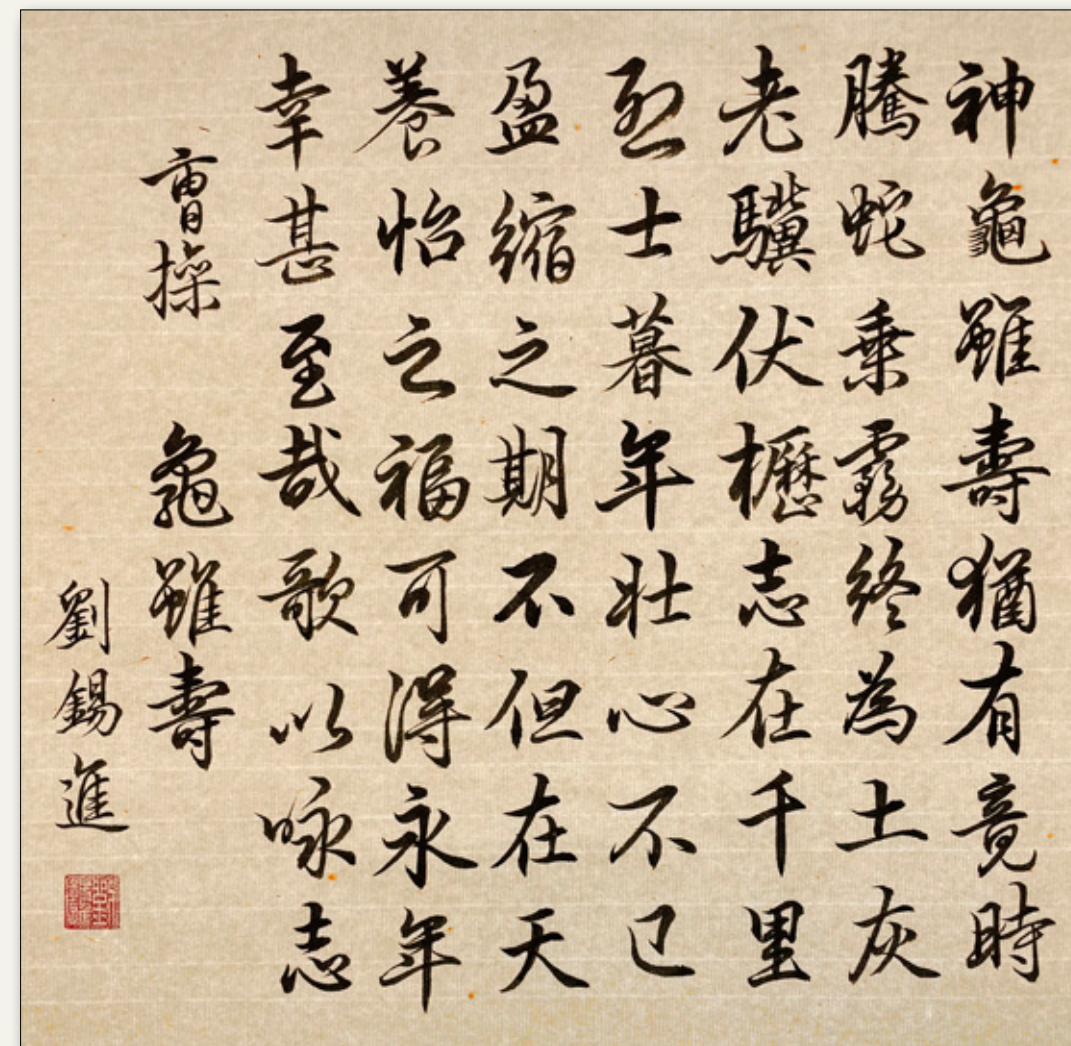 神龜雖壽猶有竟時
騰蛇乗霧終為土灰
老驥伏櫪志在千里
烈士暮年壯心不已
盈縮之期不但在天
養怡之福可得永年
幸甚至哉歌以咏志
曹操 龜雖壽
劉錫進